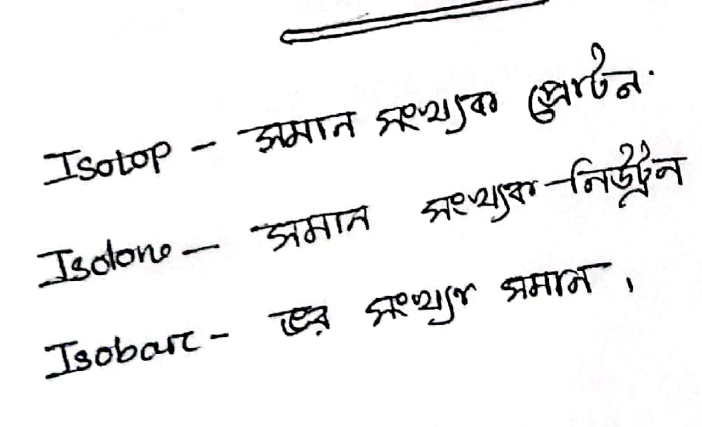 Isotop - সমান সংখ্যক প্রোটন.
Isotone - সমান সংখ্যক নিউট্রন
Isobarc - ভর সংখ্যা সমান।